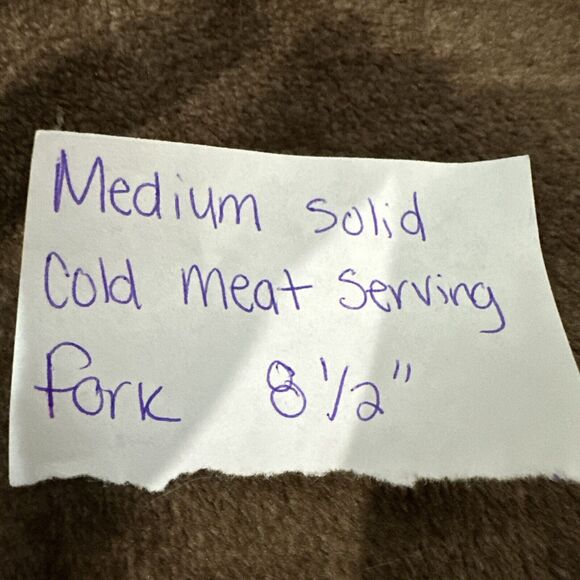 Medium solid
Cold meat serving
fork 8 1/2"